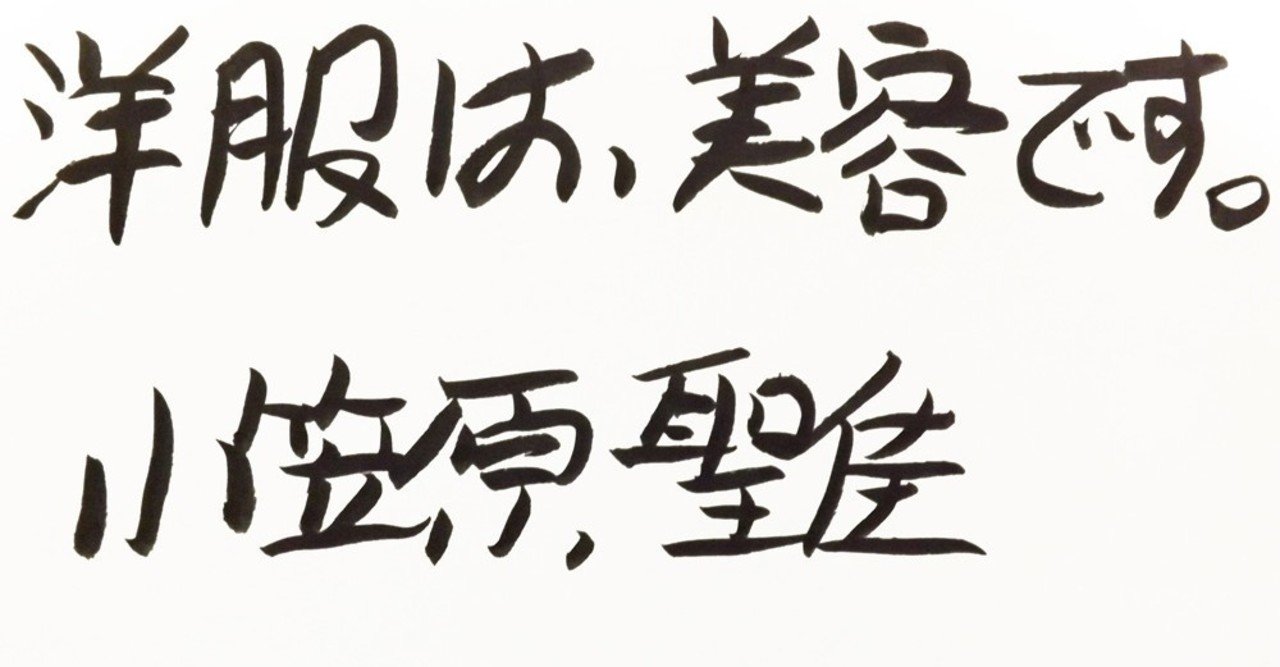 洋服は、美容です。
小笠原聖佳